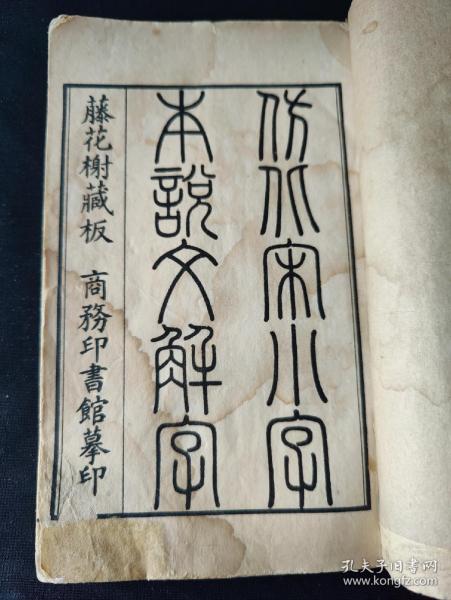 仿北宋小字
本說文解字
藤花榭藏板 商務印書館摹印
孔夫子旧书网
www.kongfz.com